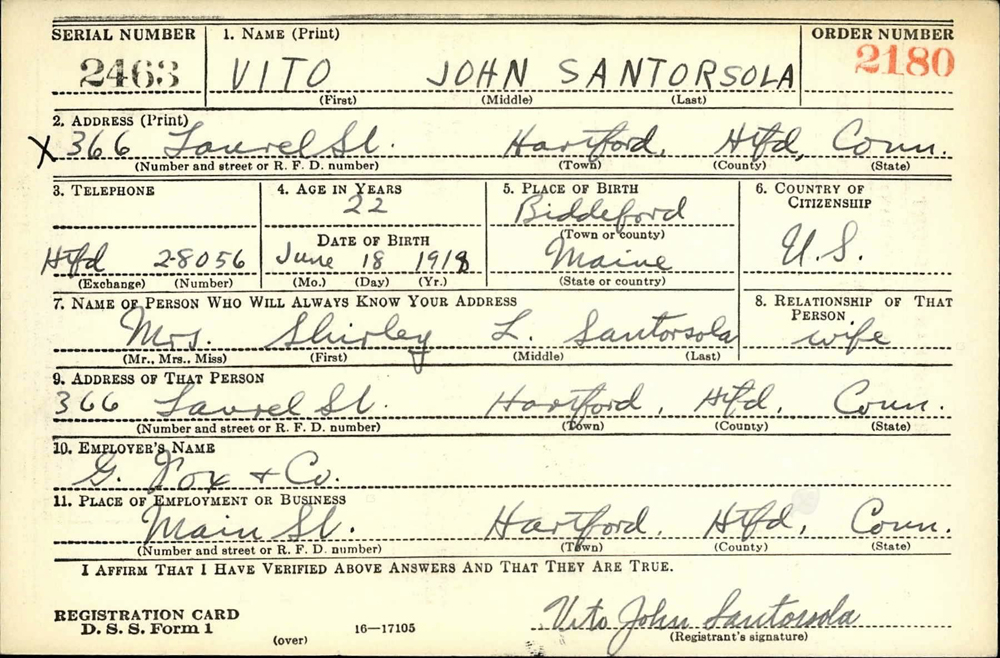 SERIAL NUMBER 1. NAME (Print) ORDER NUMBER
2463 VITO JOHN SANTORSOLA 2180
(First) (Middle) (Last)
2. ADDRESS (Print)
X 366 Laurel St. Hartford, Htfd, Conn.
(Number and street or R. F. D. number) (Town) (County) (State)
3. TELEPHONE 4. AGE IN YEARS 5. PLACE OF BIRTH 6. COUNTRY OF CITIZENSHIP
22 Biddeford
DATE OF BIRTH (Town or county) U.S.
Htfd 28056 June 18 1918 Maine
(Exchange) (Number) (Mo.) (Day) (Yr.) (State or country)
7. NAME OF PERSON WHO WILL ALWAYS KNOW YOUR ADDRESS 8. RELATIONSHIP OF THAT PERSON
Mrs. Shirley L. Santorsola wife
(Mr., Mrs., Miss) (First) (Middle) (Last)
9. ADDRESS OF THAT PERSON
366 Laurel St. Hartford, Htfd, Conn.
(Number and street or R. F. D. number) (Town) (County) (State)
10. EMPLOYER'S NAME
G. Fox + Co.
11. PLACE OF EMPLOYMENT OR BUSINESS
Main St. Hartford, Htfd, Conn.
(Number and street or R. F. D. number) (Town) (County) (State)
I AFFIRM THAT I HAVE VERIFIED ABOVE ANSWERS AND THAT THEY ARE TRUE.
REGISTRATION CARD Vito John Santorsola
D. S. S. Form 1 (over) 16—17105 (Registrant's signature)